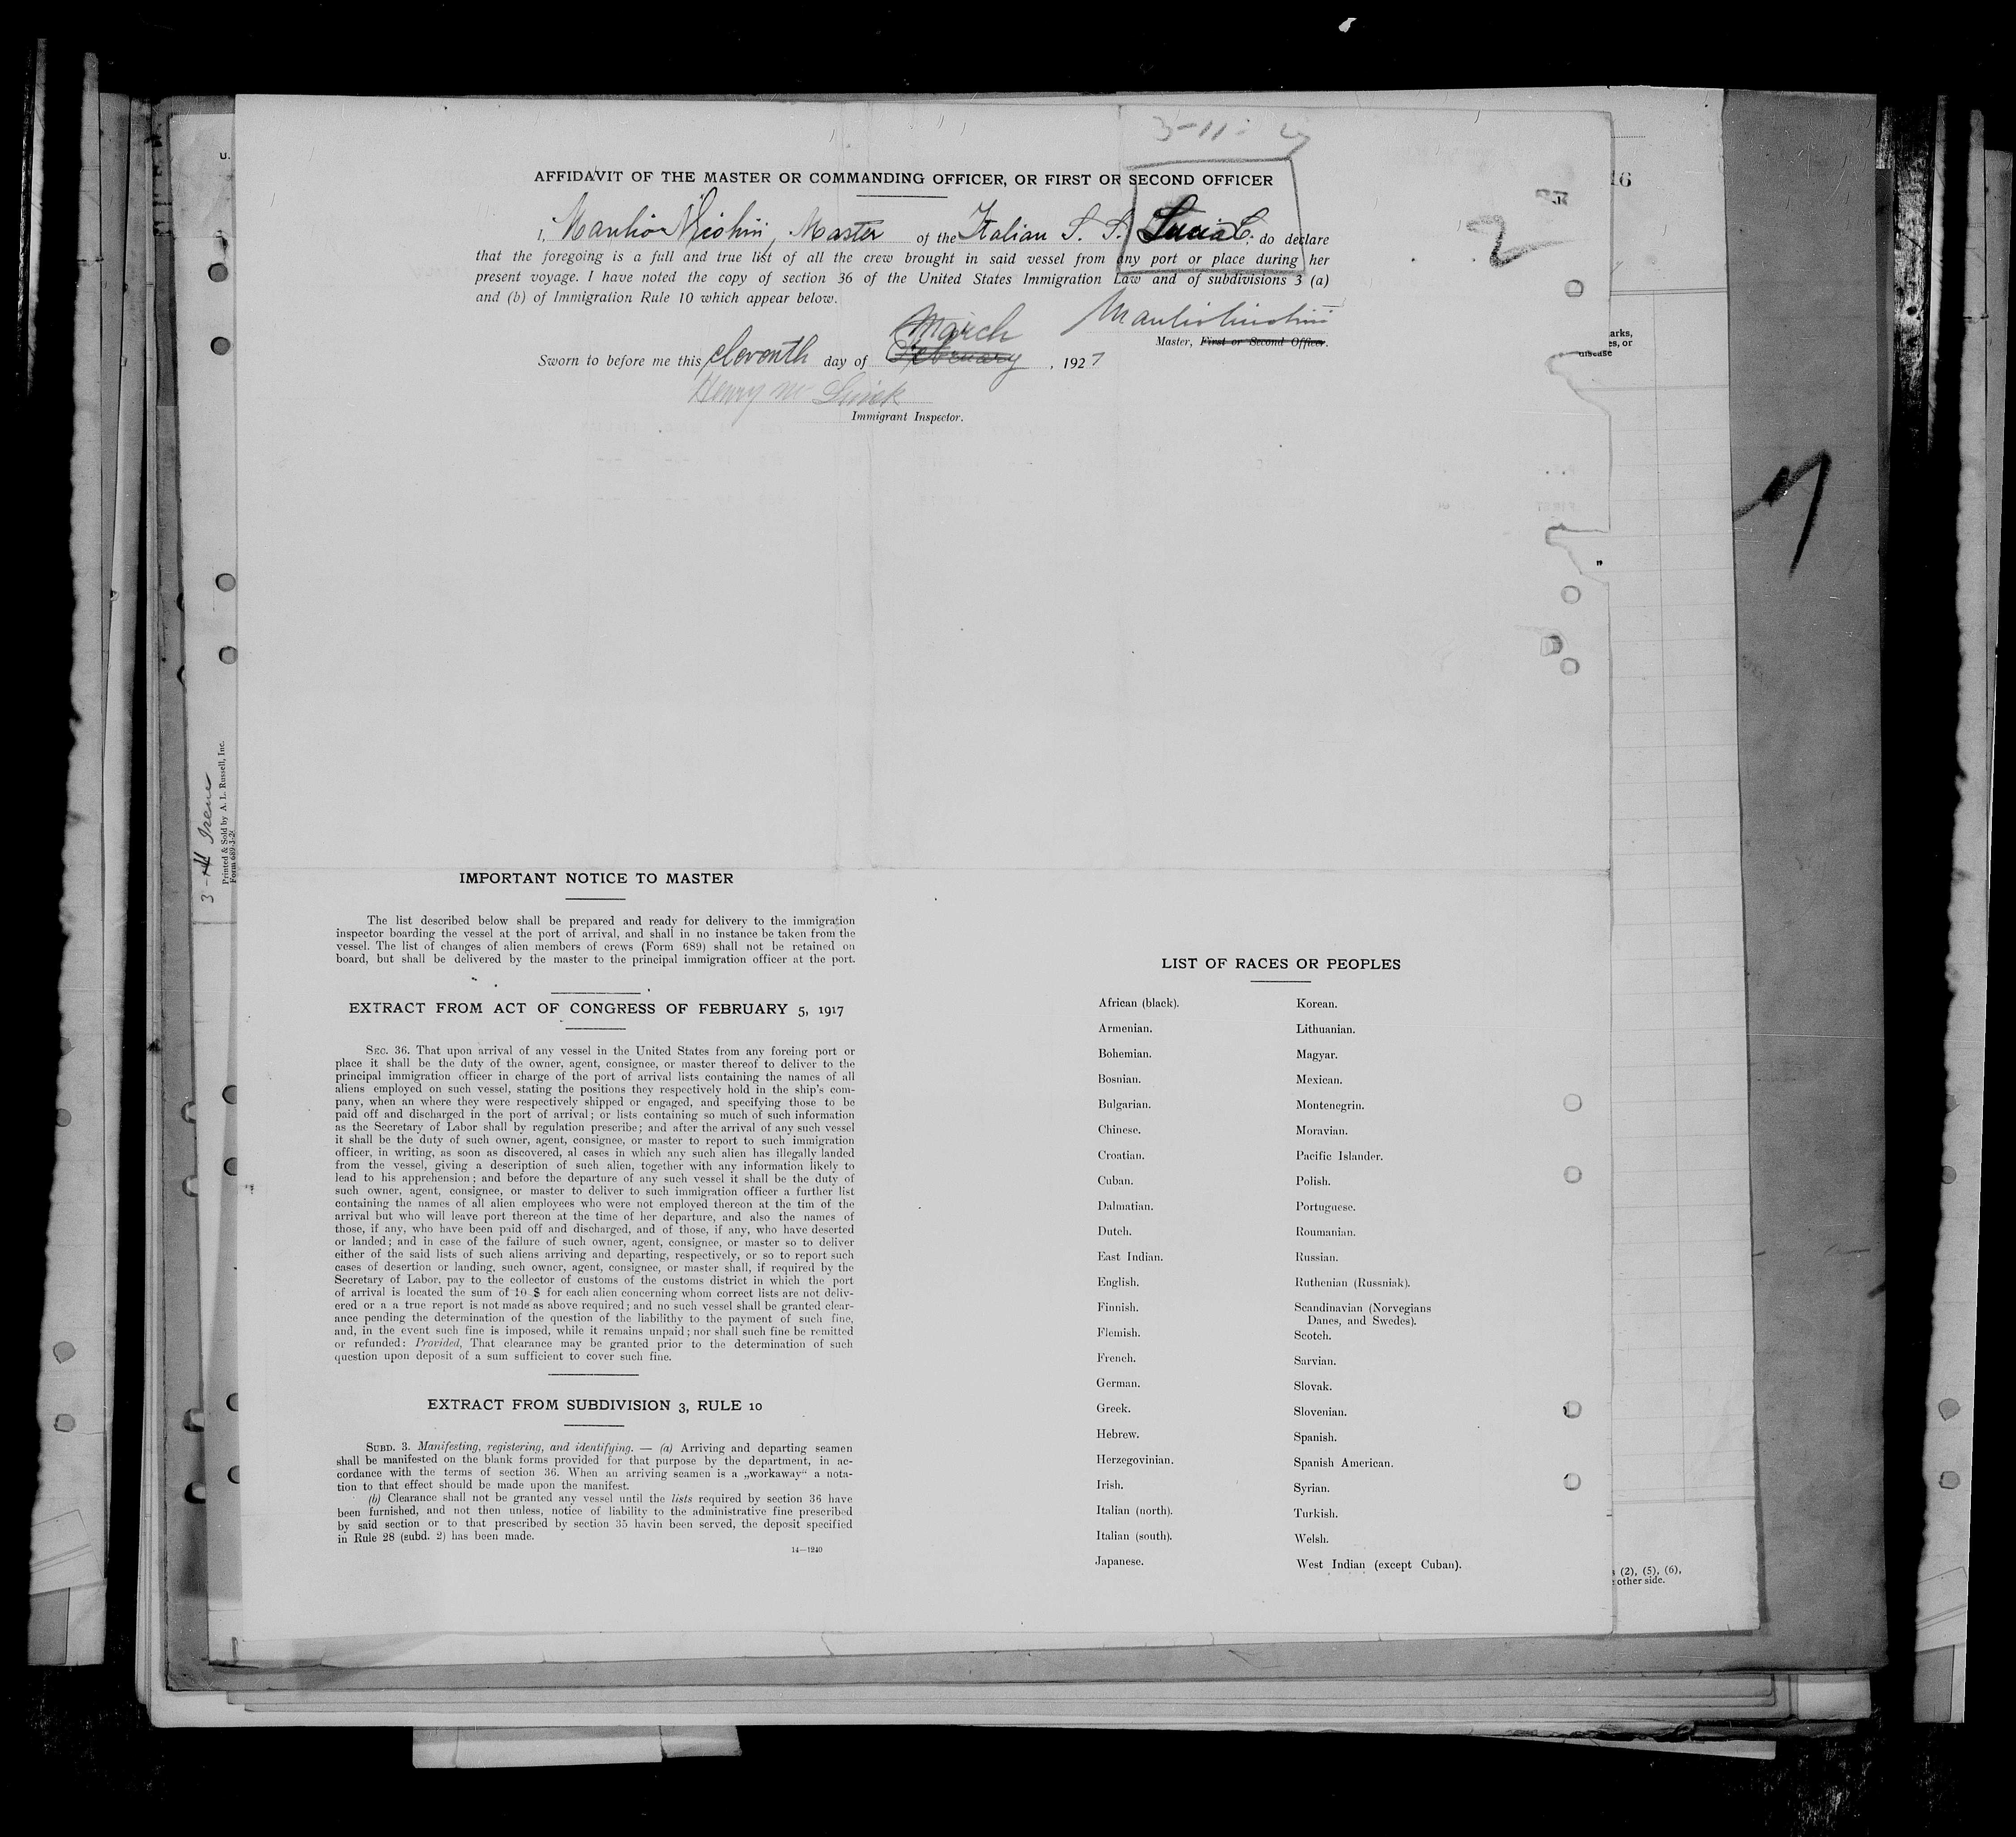 3-11-27
AFFIDAVIT OF THE MASTER OR COMMANDING OFFICER, OR FIRST OR SECOND OFFICER
I, Manlio Master of the Italian S. S. Lucia C. do declare
that the foregoing is a full and true list of all the crew brought in said vessel from any port or place during her
present voyage. I have noted the copy of section 36 of the United States Immigration Law and of subdivisions 3 (a)
and (b) of Immigration Rule 10 which appear below.
Master, First or Second Officer.
March
Sworn to before me this eleventh day of February, 1927
Henry
Immigrant Inspector.
2
16
U.
arks,
es, or
disease
"
7
3-11 Irene
Printed & Sold by A. L. Russell, Inc.
Form 689-3-2
IMPORTANT NOTICE TO MASTER
The list described below shall be prepared and ready for delivery to the immigration
inspector boarding the vessel at the port of arrival, and shall in no instance be taken from the
vessel. The list of changes of alien members of crews (Form 689) shall not be retained on
board, but shall be delivered by the master to the principal immigration officer at the port.
EXTRACT FROM ACT OF CONGRESS OF FEBRUARY 5, 1917
SEC. 36. That upon arrival of any vessel in the United States from any foreing port or
place it shall be the duty of the owner, agent, consignee, or master thereof to deliver to the
principal immigration officer in charge of the port of arrival lists containing the names of all
aliens employed on such vessel, stating the positions they respectively hold in the ship's com-
pany, when an where they were respectively shipped or engaged, and specifying those to be
paid off and discharged in the port of arrival; or lists containing so much of such information
as the Secretary of Labor shall by regulation prescribe; and after the arrival of any such vessel
it shall be the duty of such owner, agent, consignee, or master to report to such immigration
officer, in writing, as soon as discovered, al cases in which any such alien has illegally landed
from the vessel, giving a description of such alien, together with any information likely to
lead to his apprehension; and before the departure of any such vessel it shall be the duty of
such owner, agent, consignee, or master to deliver to such immigration officer a further list
containing the names of all alien employees who were not employed thereon at the tim of the
arrival but who will leave port thereon at the time of her departure, and also the names of
those, if any, who have been paid off and discharged, and of those, if any, who have deserted
or landed; and in case of the failure of such owner, agent, consignee, or master so to deliver
either of the said lists of such aliens arriving and departing, respectively, or so to report such
cases of desertion or landing, such owner, agent, consignee, or master shall, if required by the
Secretary of Labor, pay to the collector of customs of the customs district in which the port
of arrival is located the sum of 10 $ for each alien concerning whom correct lists are not deliv-
ered or a a true report is not made as above required; and no such vessel shall be granted clear-
ance pending the determination of the question of the liabilithy to the payment of such fine,
and, in the event such fine is imposed, while it remains unpaid; nor shall such fine be remitted
or refunded: Provided, That clearance may be granted prior to the determination of such
question upon deposit of a sum sufficient to cover such fine.
EXTRACT FROM SUBDIVISION 3, RULE 10
SUBD. 3. Manifesting, registering, and identifying. — (a) Arriving and departing seamen
shall be manifested on the blank forms provided for that purpose by the department, in ac-
cordance with the terms of section 36. When an arriving seamen is a „workaway“ a nota-
tion to that effect should be made upon the manifest.
(b) Clearance shall not be granted any vessel until the lists required by section 36 have
been furnished, and not then unless, notice of liability to the administrative fine prescribed
by said section or to that prescribed by section 35 havin been served, the deposit specified
in Rule 28 (subd. 2) has been made.
14—1240
LIST OF RACES OR PEOPLES
African (black).
Armenian.
Bohemian.
Bosnian.
Bulgarian.
Chinese.
Croatian.
Cuban.
Dalmatian.
Dutch.
East Indian.
English.
Finnish.
Flemish.
French.
German.
Greek.
Hebrew.
Herzegovinian.
Irish.
Italian (north).
Italian (south).
Japanese.
Korean.
Lithuanian.
Magyar.
Mexican.
Montenegrin.
Moravian.
Pacific Islander.
Polish.
Portuguese.
Roumanian.
Russian.
Ruthenian (Russniak).
Scandinavian (Norvegians
Danes, and Swedes).
Scotch.
Sarvian.
Slovak.
Slovenian.
Spanish.
Spanish American.
Syrian.
Turkish.
Welsh.
West Indian (except Cuban).
(2), (5), (6),
other side.